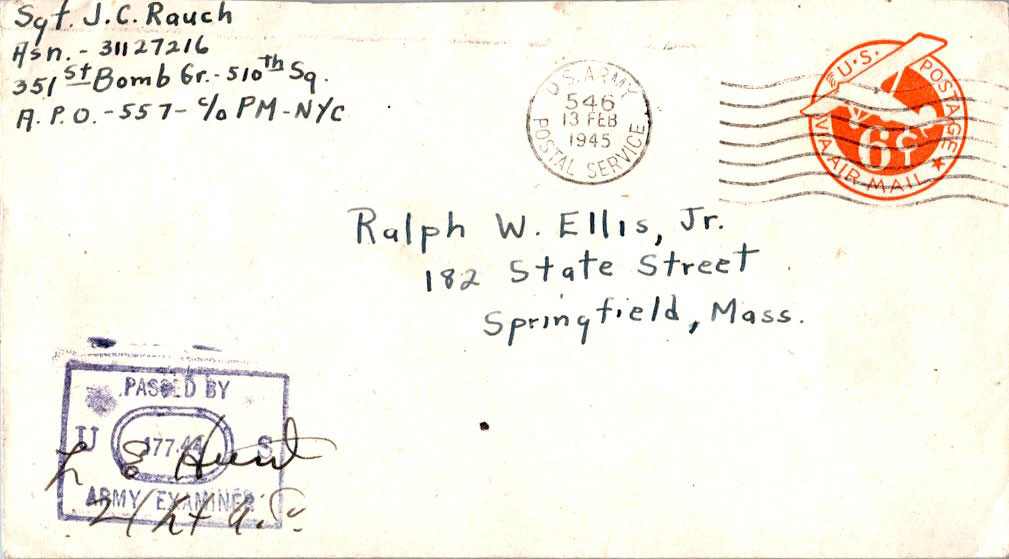 Sgt. J.C. Rauch
Asn. - 31127216
351st Bomb Gr. - 510th Sq.
A.P.O. - 557 - c/o PM - NYC
U.S. ARMY
546
13 FEB
1945
POSTAL SERVICE
U.S. POSTAGE
6¢
VIA AIR MAIL
Ralph W. Ellis, Jr.
182 State Street
Springfield, Mass.
PASSED BY
U S
L E Hunt
ARMY EXAMINER